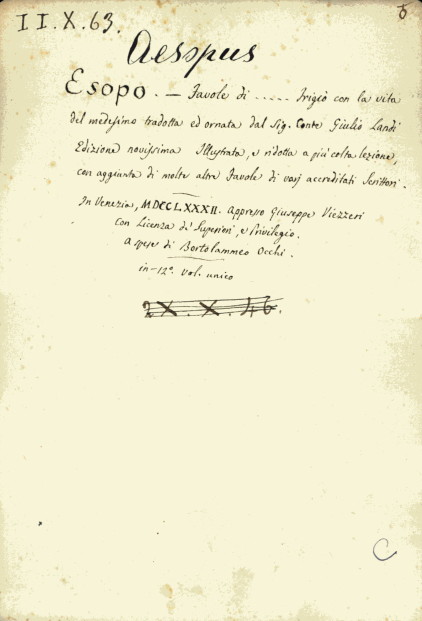 II.X.63.
6
Aesopus
Esopo. — Favole di ..... Frigio con la vita
del medesimo tradotta ed ornata dal Sig. Conte Giulio Landi
Edizione novissima Illustrata, e ridotta a più colta lezione,
con aggiunta di molte altre Favole di varj accreditati Scrittori.
In Venezia, MDCCLXXXII. Appresso Giuseppe Viezzeri
Con Licenza de' Superiori, e Privilegio.
A spese di Bortolammeo Occhi.
in-12°. vol. unico
2X.X.46.
C